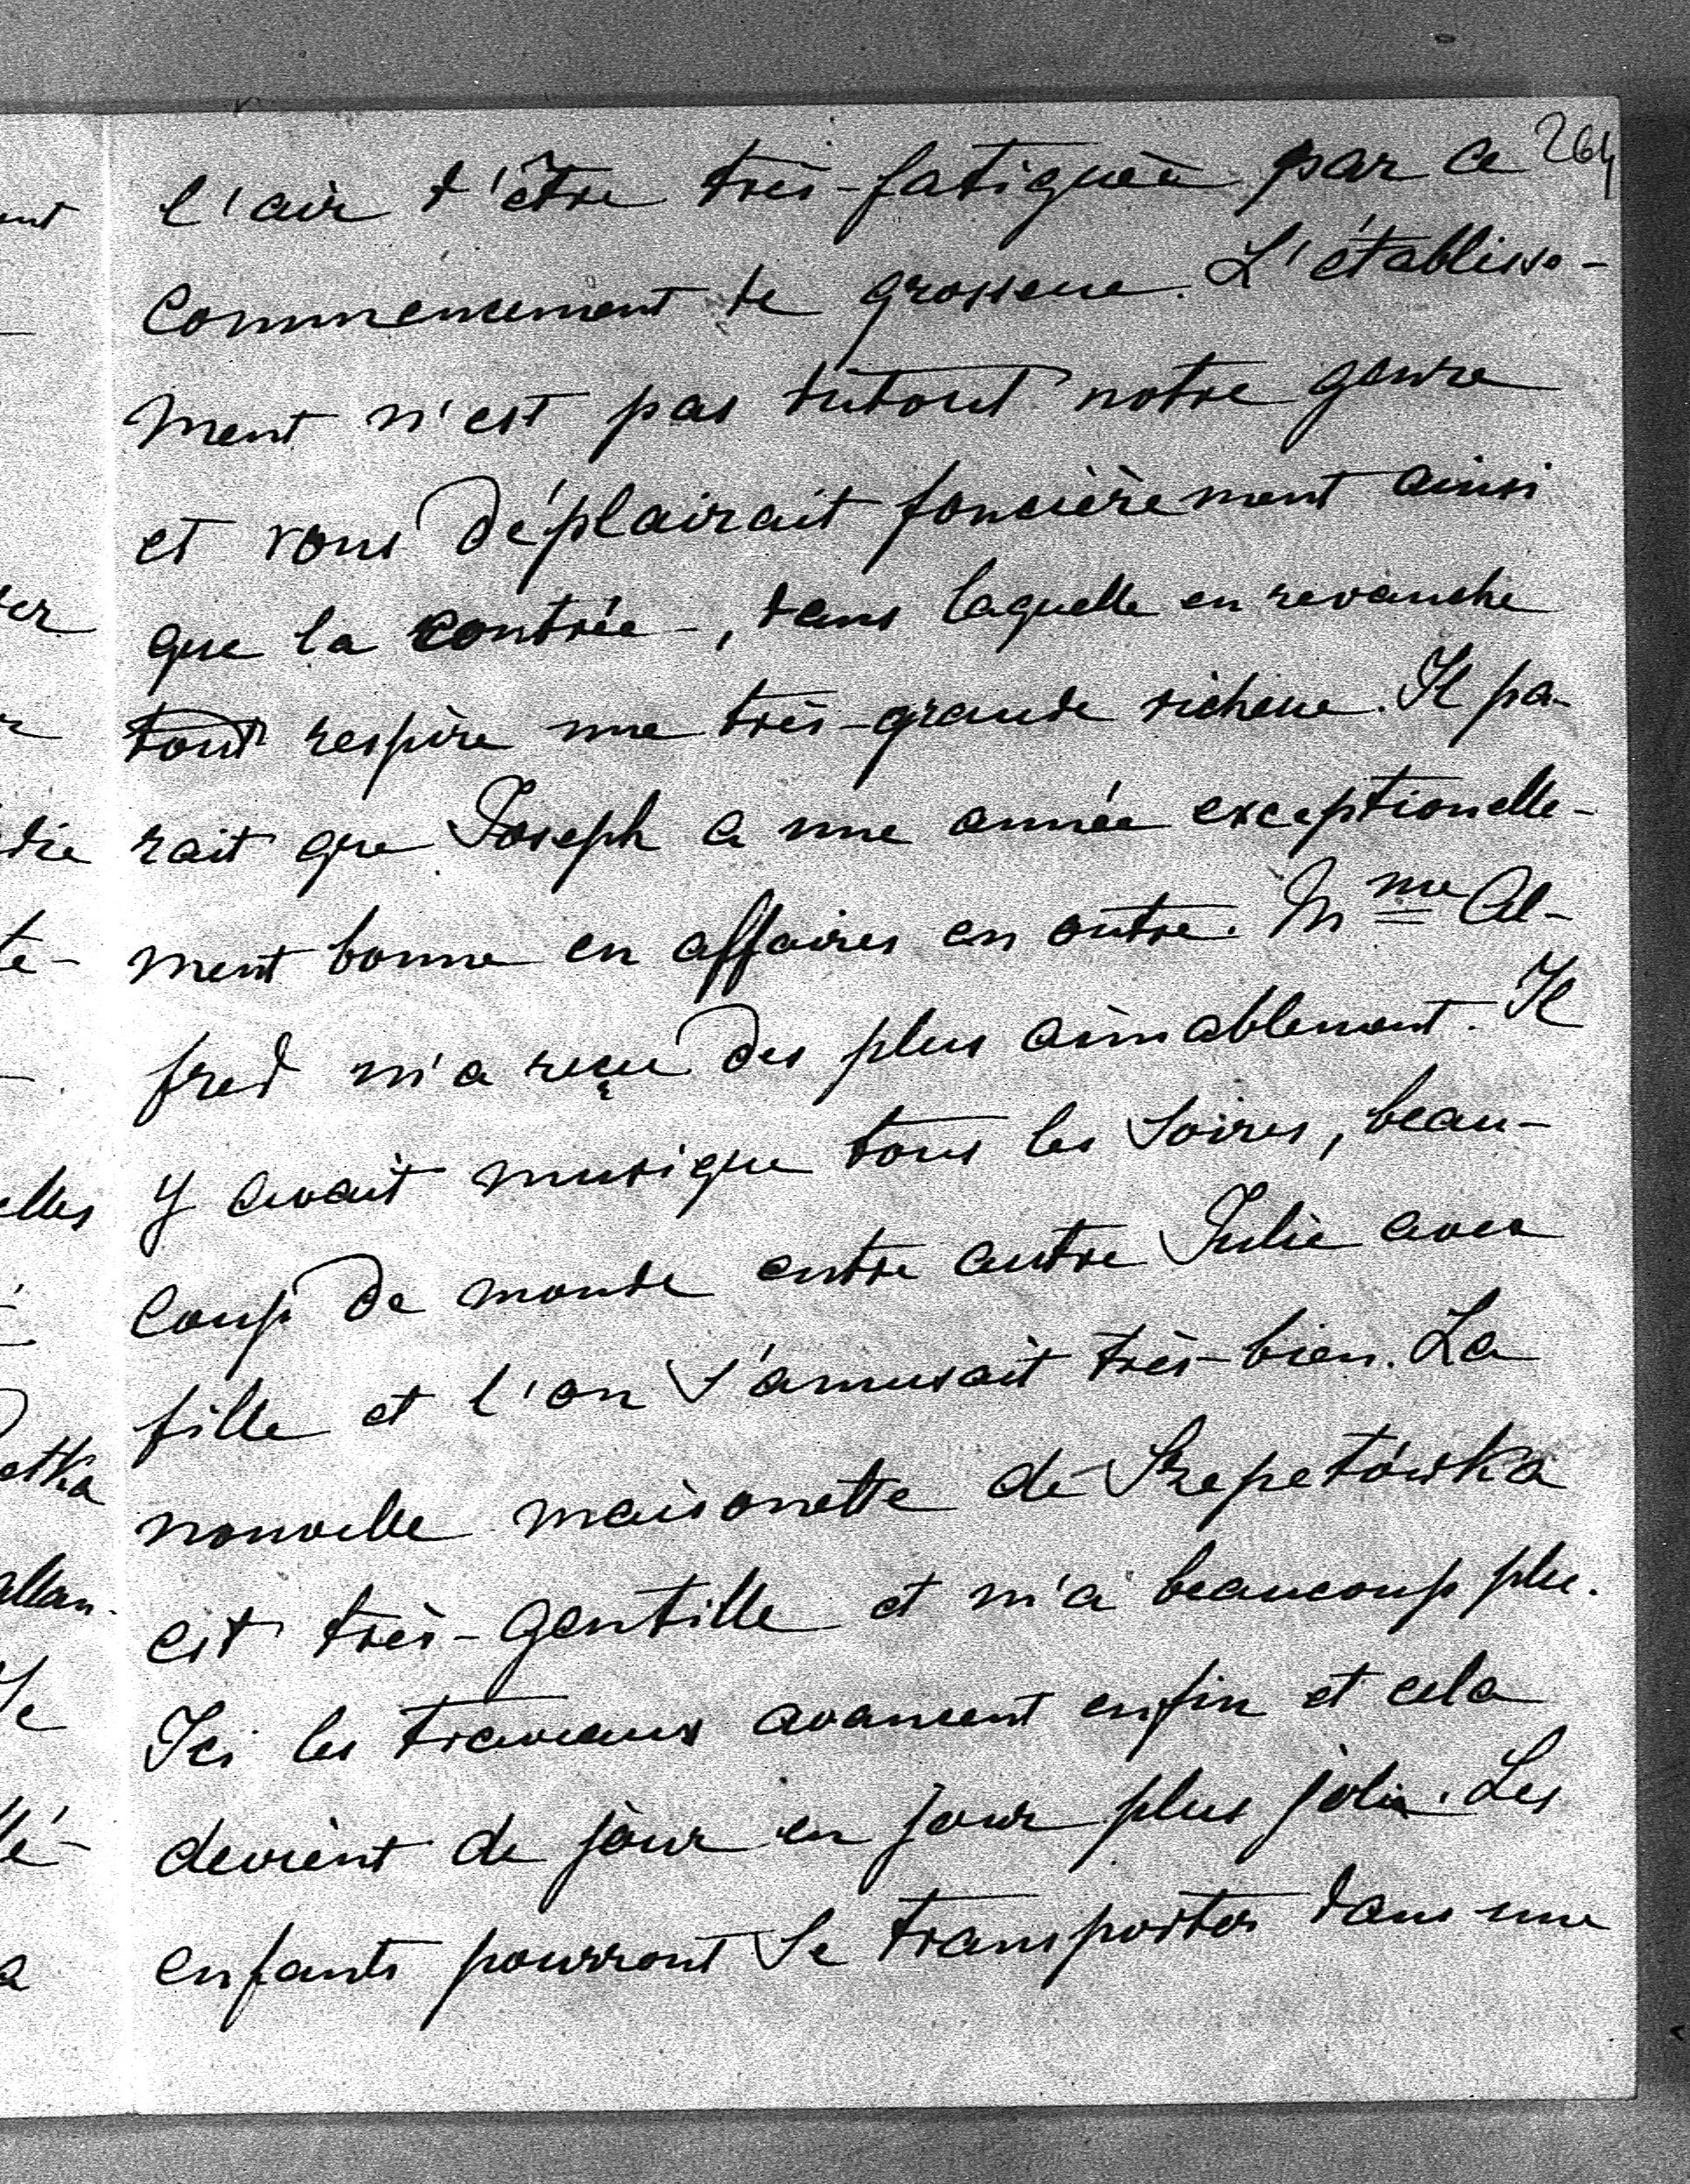 264
l'air d'être très-fatiguée par ce
commencement de grossesse. L'établisse-
ment n'est pas dutout notre genre
et vous déplairait foncièrement ainsi
que la contrée -, dans laquelle en revanche
tout respire une très-grande richesse. Il pa-
rait que Joseph a une année exceptionelle-
ment bonne en affaires en outre. Mme Al-
fred m'a reçu des plus aimablement. Il
y avait musique tous les soires, beau-
coup de monde entre autre Julie avec
fille et l'on s'amusait très-bien. La
nouvelle maisonette de Szepetówka
est très-gentille et m'a beaucoup plu.
Ici les travaux avancent enfin et cela
devient de jour en jour plus jolie. Les
enfants pourront se transporter dans une